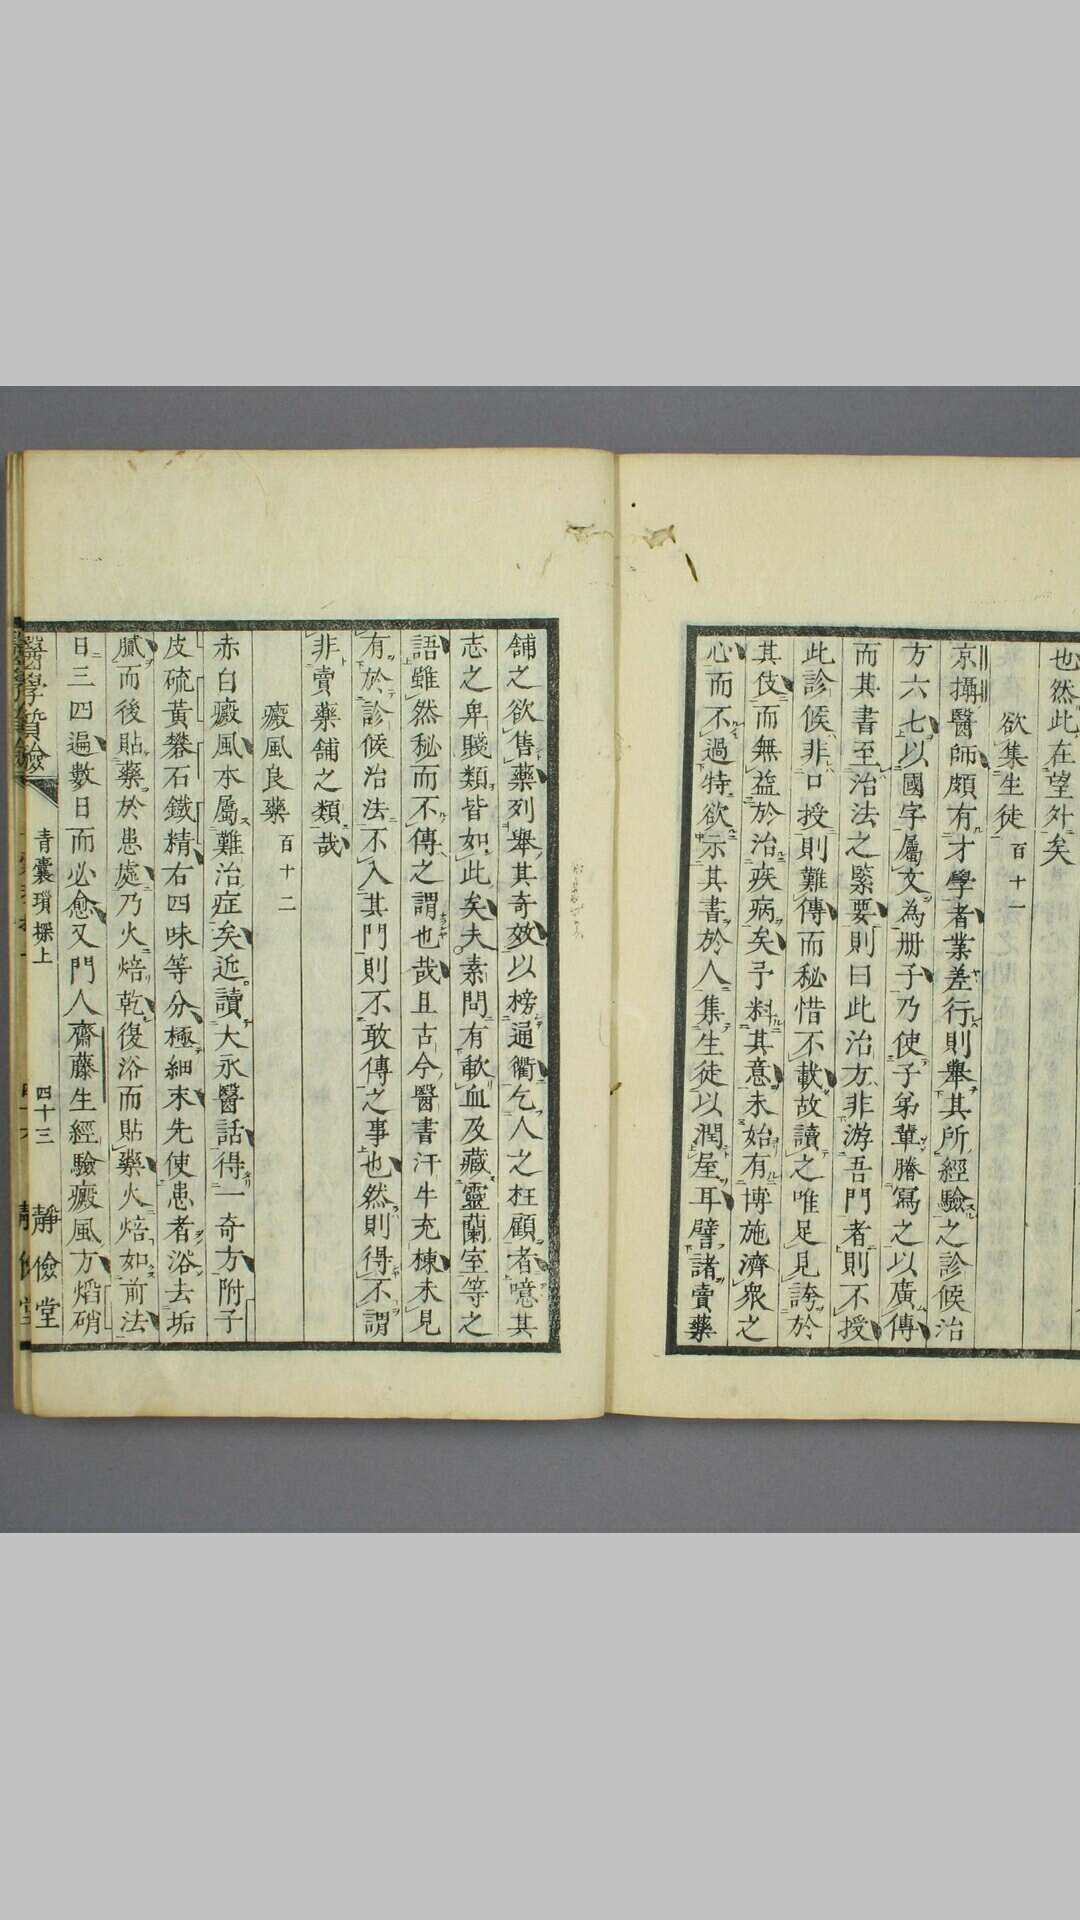 也然此在望外矣
欲集生徒 百十一
京攝醫師頗有才學者業差行則舉其所經驗之診候治
方六七以國字屬文為册子乃使子弟輩謄寫之以廣傳
而其書至治法之緊要則曰此治方非游吾門者則不授
此診候非口授則難傳而秘惜不載故讀之唯足見誇於
其伎而無益於治疾病矣予料其意未始有博施濟衆之
心而不過特欲示其書於人集生徒以潤屋耳譬諸賣藥
舖之欲售藥列舉其奇效以榜逼衢乞人之枉顧者噫其
志之卑賤類皆如此矣夫素問有歃血及藏靈蘭室等之
語雖然秘而不傳之謂也哉且古今醫書汗牛充棟未見
有於診候治法不入其門則不敢傳之事也然則得不謂
非賣藥舖之類哉
癜風良藥 百十二
赤白癜風本屬難治症矣近讀大永醫話得一奇方附子
皮硫黃礬石鐵精右四味等分極細末先使患者浴去垢
膩而後貼藥於患處乃火焙乾復浴而貼藥火焙如前法
日三四遍數日而必愈又門人齋藤生經驗癜風方焰硝
青囊瑣探上 四十三 靜儉堂